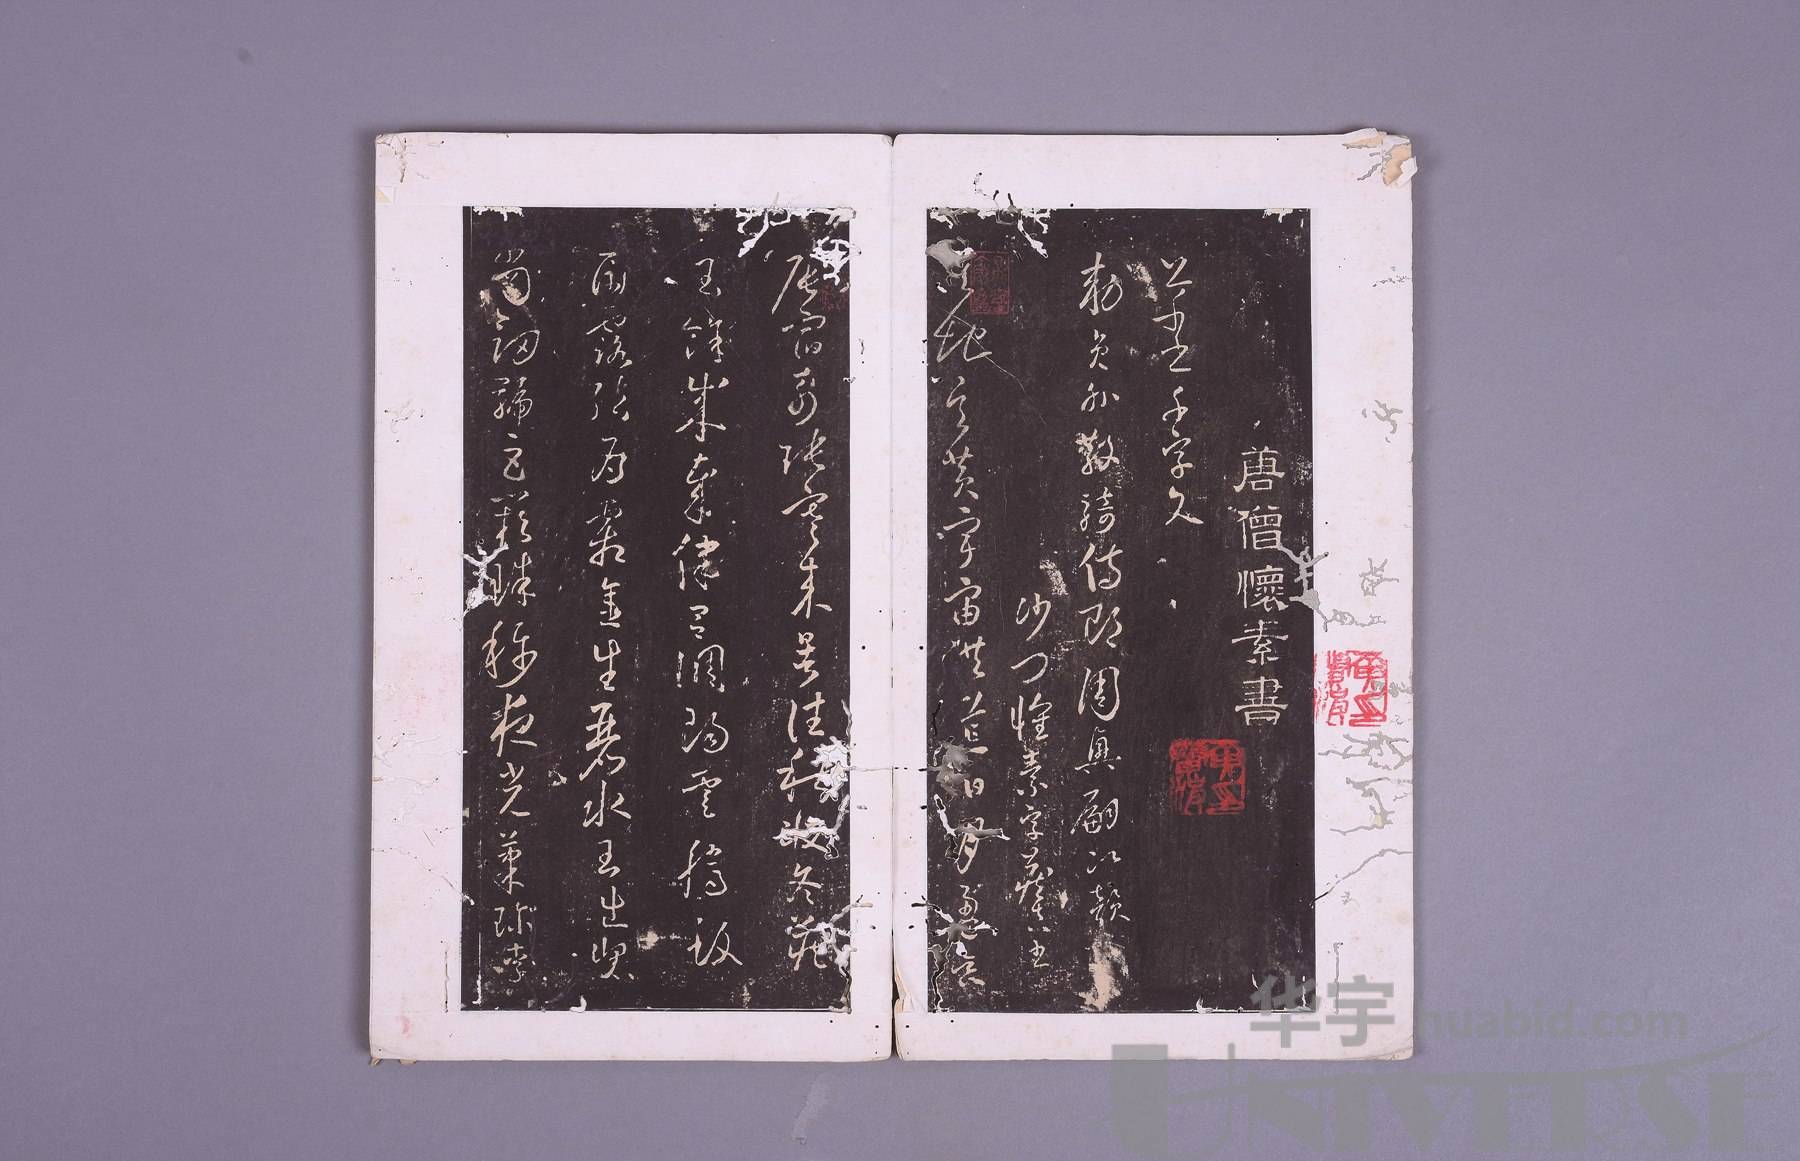 唐僧懷素書
千字文
勅員外散騎侍郎周興嗣次韻
沙門懷素字藏真書
天地玄黃宇宙洪荒日月盈昃
辰宿列張寒來暑往秋收冬藏
閏餘成歲律呂調陽雲騰致
雨露結為霜金生麗水玉出崐
岡劍號巨闕珠稱夜光菓珍李
华宇 huabid.com
UNIVERSE